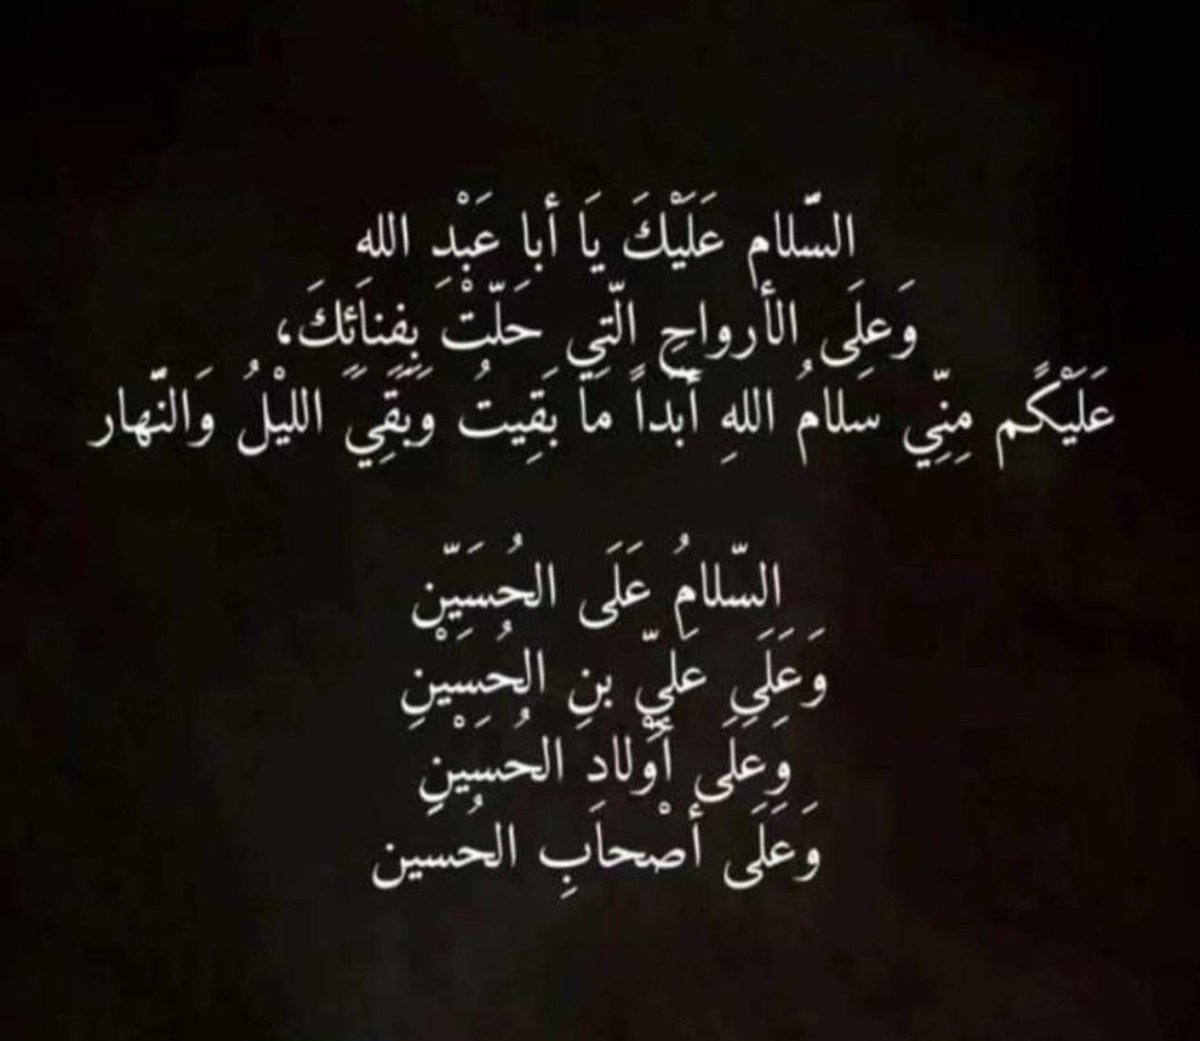 السَّلام عَلَيْكَ يَا أبا عَبْدَ الله
وَعلَى الأرواحِ الّتِي حَلّتْ بِفنَائكَ،
عَلَيْكًم مِنِّي سَلامُ اللهِ أَبَداً مَا بَقِيتُ وَبَقَِيََ الليْلُ وَالنَّهار
السّلامُ عَلَى الحُسَيّن
وَعَلَى عَلِيّ بنِ الحُسَيْنِ
وَعَلَى أوْلادِ الحُسَيْنِ
وَعَلَى أصْحاَبِ الحُسين